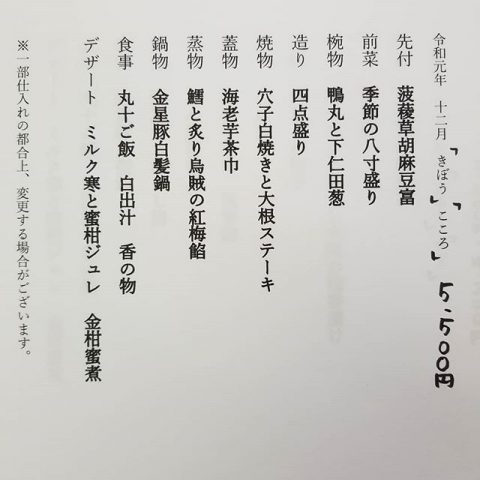 令和元年 十二月 「きぼう」「こころ」 5.500円
先付 菠薐草胡麻豆富
前菜 季節の八寸盛り
椀物 鴨丸と下仁田葱
造り 四点盛り
焼物 穴子白焼きと大根ステーキ
蓋物 海老芋茶巾
蒸物 鱈と炙り烏賊の紅梅餡
鍋物 金星豚白髪鍋
食事 丸十ご飯 白出汁 香の物
デザート ミルク寒と蜜柑ジュレ 金柑蜜煮
※一部仕入れの都合上、変更する場合がございます。